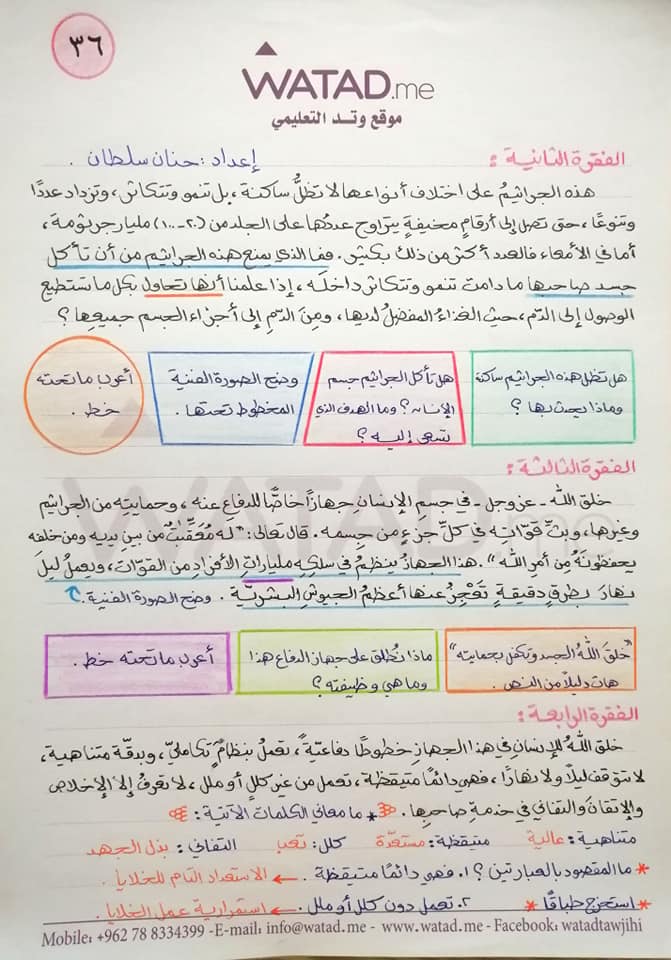 ٣٦
WATAD.me
موقع وتد التعليمي
الفقرة الثانية : إعداد : حنان سلطان .
هذه الجراثيمُ على اختلاف أنواعها لا تظلُّ ساكنة ، بل تنمو وتتكاثر ، وتزداد عددًا
وتنوعًا ، حتى تصل إلى أرقامٍ مخيفةٍ يتراوح عددُها على الجلد من (٢٠-١٠٠) مليار جرثومة ،
أما في الأمعاء فالعدد أكثر من ذلك بكثير . فما الذي يمنع هذه الجراثيم من أن تأكل
جسد صاحبها ما دامت تنمو وتتكاثر داخلَه ، إذا علمنا أنها تحاول بكل ما تستطيع
الوصول إلى الدّم ، حيث الغذاءُ المفضلُ لديها ، ومِنَ الدّمِ إلى أجزاء الجسم جميعِها ؟
هل تظل هذه الجراثيم ساكنة
وماذا يحدث بها ؟
هل تأكل الجراثيم جسم
الإنسان ؟ وما الهدف الذي
تسعى إليه ؟
وضح الصورة الفنية
المخطوط تحتها .
أعرب ما تحته
خط .
الفقرة الثالثة :
خلق اللّٰه - عز وجل - في جسمِ الإنسانِ جهازًا خاصًّا للدفاعِ عنه ، وحمايتِه من الجراثيم
وغيرها ، وبثَّ قوّاتِه في كلِّ جزءٍ من جسمه . قال تعالى: "له مُعَقِّبَتٌ من بينِ يديه ومن خلفه
يحفظونَهُ من أمرِ اللّٰه" . هذا الجهازُ ينتظمُ في سلكِه ملياراتِ الأفرادِ من القوّات ، ويعملُ ليلَ
نهارَ بطرقٍ دقيقةٍ تَعْجِزُ عنها أعظمُ الجيوشِ البشريّة . وضح الصورة الفنية .
"خلقَ اللّٰهُ الجسد وتكفل بحمايته"
هات دليلًا من النص .
ماذا نُطلق على جهاز الدفاع هذا
وما هي وظيفته ؟
أعرب ما تحته خط .
الفقرة الرابعة :
خلق اللّٰهُ للإنسانِ في هذا الجهازِ خطوطًا دفاعيّةً ، تعملُ بنظامٍ تكامليّ ، وبدقّة متناهية ،
لا تتوقف ليلًا ولا نهارًا ، فهي دائمًا متيقظة ، تعمل من غيرِ كللٍ أو ملل ، لا تعرفُ إلا الإخلاص
والإتقانَ والتفاني في خدمةِ صاحبِها . * ما معاني الكلمات الآتية :
متناهية : عالية متيقظة : مستعدّة كلل : تعب التفاني : بذل الجهد
* ما المقصود بالعبارتين ؟ ١. فهي دائمًا متيقظة . ← الاستعداد التام للخلايا .
* استخرج طباقًا * ٢. تعمل دون كلل أو ملل . ← استمرارية عمل الخلايا .
Mobile: +962 78 8334399 -E-mail: info@watad.me - www.watad.me - Facebook: watadtawjihi